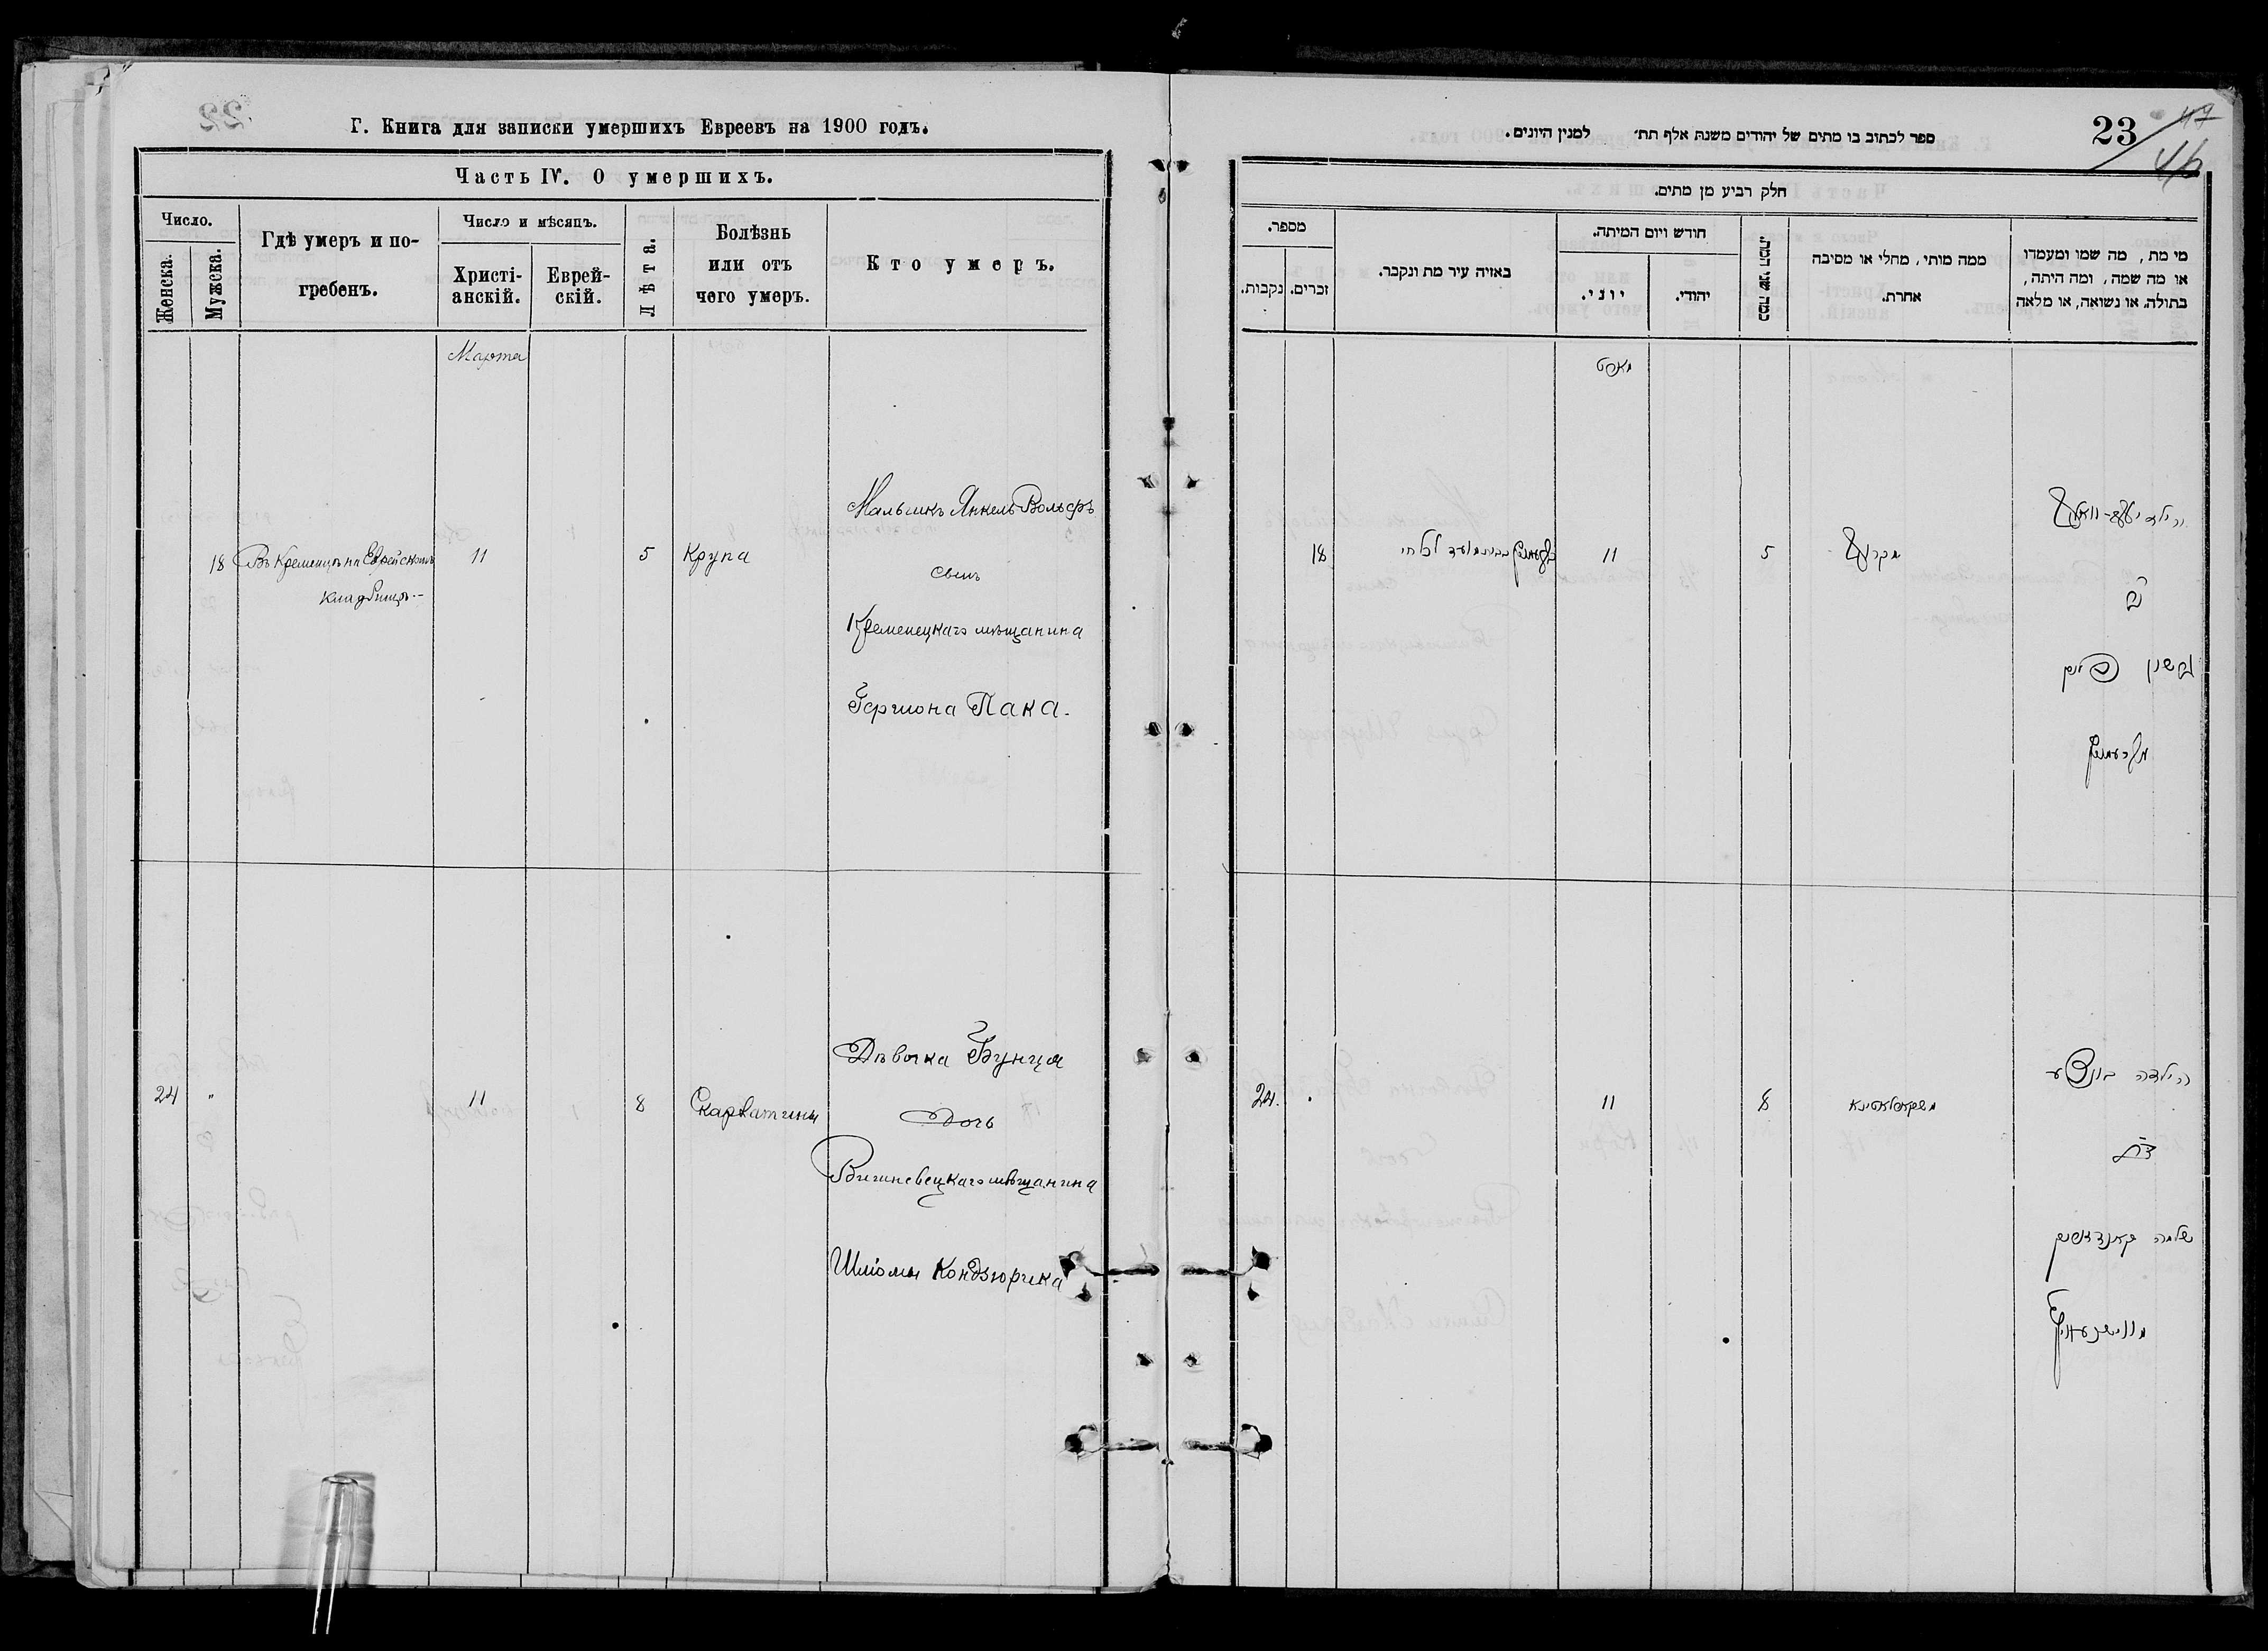 Г. Книга для записки умершихъ Евреевъ на 1900 годъ.
Часть IV. О умершихъ.
Число.
Женска.
Мужска.
Гдѣ умеръ и по-
гребенъ.
Число и мѣсяцъ.
Христі-
анскій.
Еврей-
скій.
Лѣта.
Болѣзнь
или отъ
чего умеръ.
Кто умеръ.
Марта
18
Въ Кременцѣ на Еврейскомъ
кладбищѣ
11
5
Крупа
Мальчикъ Янкель Вольфъ
сынъ
Кременецкаго мѣщанина
Гершона Пака.
24
"
11
8
Скарлатины
Дѣвочка Бунця
Дочь
Вишневецкаго мѣщанина
Шлiомы Кондзюрчека
23
47
46
ספר לכתוב בו מתים של יהודים משנת אלף תת׳ למנין היונים.
חלק רביע מן מתים.
מספר.
נקבות.
זכרים.
באיזה עיר מת ונקבר.
חודש ויום המיתה.
יוני.
יהודי.
כמה שני המת.
ממה מותי, מחלי או מסיבה
אחרת.
מי מת, מה שמו ומעמדו
או מה שמה, ומה היתה,
בתולה או נשואה, או מלאה
מארט
18
11
5
הילד יענקל-וואלף
בן
גרשון פאק
מקרעמעניץ
24.
11
8
משקארלאטינא
הילדה בונציע
בת
שלמה
מווישנעוויץ